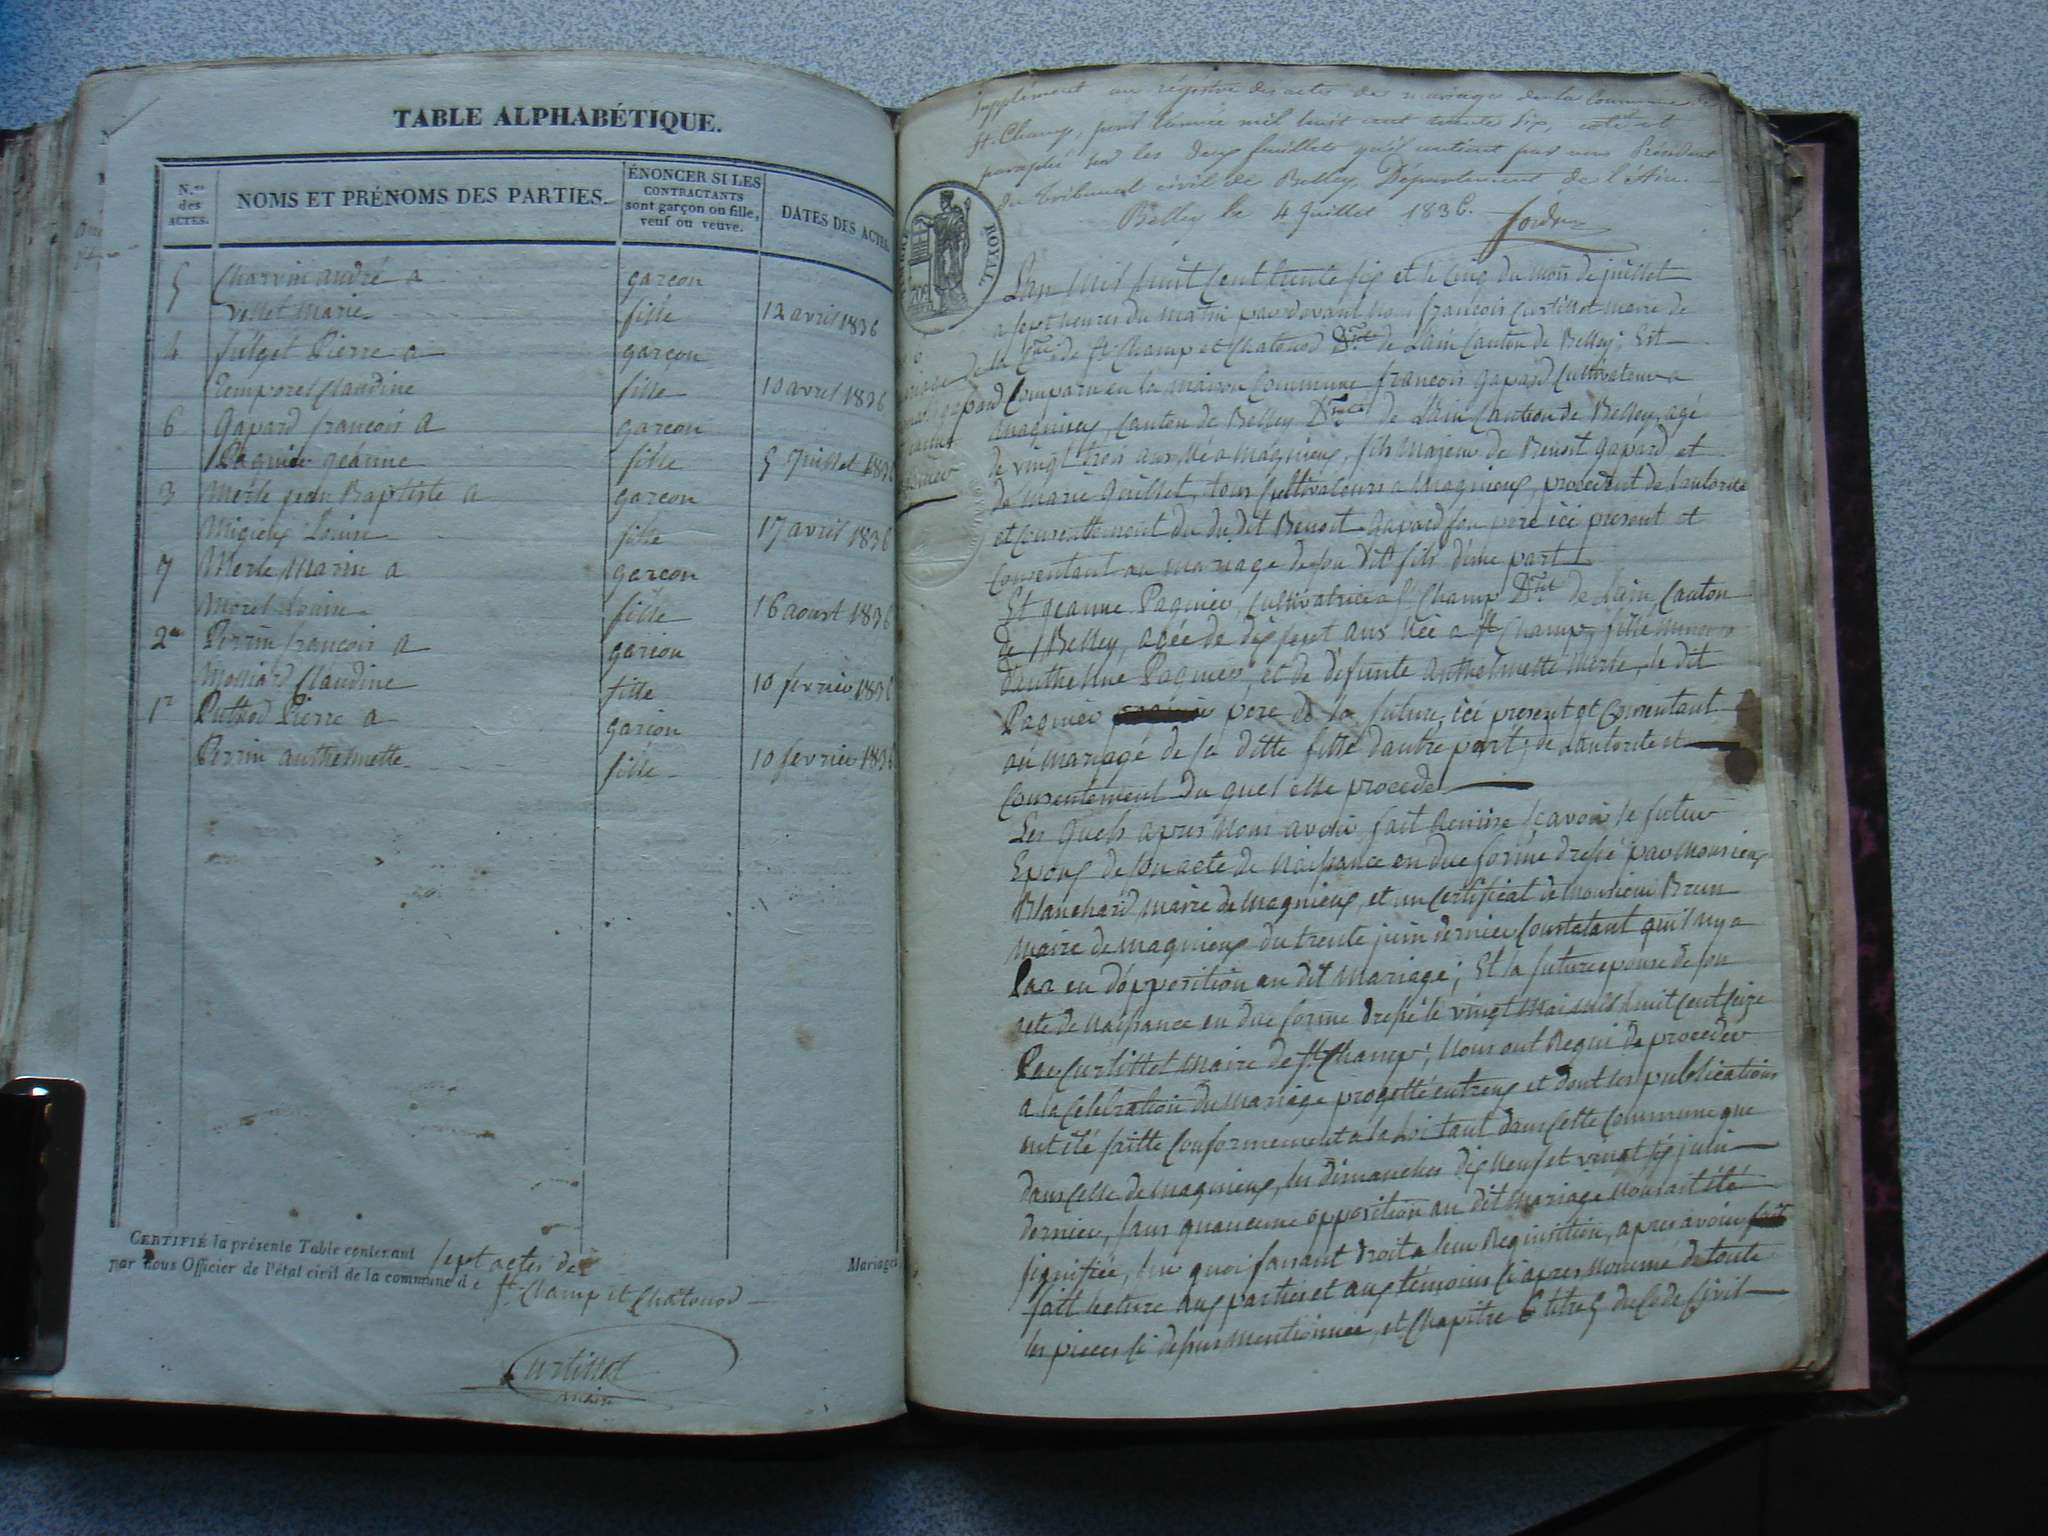 TABLE ALPHABÉTIQUE.
N.os des ACTES.
NOMS ET PRÉNOMS DES PARTIES.
ÉNONCER SI LES CONTRACTANTS sont garçon ou fille, veuf ou veuve.
DATES DES ACTES
5 Charvin andré a garçon
Vellet Marie fille 12 avril 1836
4 Pierre a garçon
Temporel Claudine fille 10 avril 1836
6 Gapard françois a garçon
Paquier géanne fille 5 Juillet 1836
3 Merle jean Baptiste a garçon
Louise fille 17 avril 1836
7 Merle Marin a garçon
Morel Louise fille 16 aoust 1836
2e Perrin françois a garion
Claudine fille 10 fevrier 1836
1r Puthod Pierre a garion
Perrin anthelmette fille 10 fevrier 1836
CERTIFIÉ la présente Table contenant sept actes de Mariages
par nous Officier de l'état civil de la commune de
St Champ et Chatonod
Curtillet
maire
Supplément au régistre des actes de mariage de la Commune de
St. Champ, pour l'année mil huit cent trente six, coté et
paraphé sur les deux feuillets qu'il contient par nous Président
du Tribunal civil de Belley, Département de l'Ain.
Belley le 4 Juillet 1836.
TIMBRE ROYAL
L'an Mil huit Cent trente six et le Cinq du Mois de juillet
a sept heures du Matin pardevant Nous françois Curtillet Maire de
la Cne de St Champ et Chatonod Dmt de L'ain Canton de Belley; Est
Comparu en la Maison Commune françois gapard Cultivateur a
magnieux, Canton de Belley Dmt de L'ain Canton de Belley, agé
de vingt trois ans Né a Magnieux, fils Majeur de Benoit Gapard et
de Marie Guillet, tous Cultivateurs a Magnieux, procedent de l'autorité
et Consentement du du dit Benoit Gapard son pere ici present et
Consentant au mariage de son dit fils d'une part
Et geanne Paquier, Cultivatrice a St Champ Dmt de L'ain, Canton
de Belley, agée de dix sept ans Née a St Champ, fille Mineure
d'anthelme Paquier, et de défunte anthelmette Merle, le dit
Paquier pere de la future, ici present et Consentant
au mariage de sa ditte fille d'autre part, de L'autorité et
Consentement du quel elle procede
Les quels apres Nous avoir fait Remise Scavoir le futur
Epoux de son acte de Naissance en due forme dressé par Monsieur
Blanchard Maire de Magnieux, et un Certificat de Monsieur Brun
Maire de magnieux du trente juin dernier Constatant qu'il Ny a
Pas eu d'opposition au dit Mariage; Et la future epouse de son
acte de Naissance en due forme dressé le vingt Mai Mil huit Cent Seize
Par Curtillet Maire de St Champ; Nous ont Requi de proceder
a la Celebration du Mariage progetté entreux et dont les publications
ont été faitte Conformement a la Loi tant dans Cette Commune que
dans Celle de Magnieux, les dimanches dix Neuf et vingt six juin
dernier, sans qu'aucune opposition au dit Mariage Nous ait été
signifiée, sur quoi faisant droit a leur Requisition, apres avoir
fait lecture aux parties et aux témoins Ci apres Nommé de toute
les pieces Ci dessus Mentionnée, et Chapitre 6 titre 5 du Code Civil